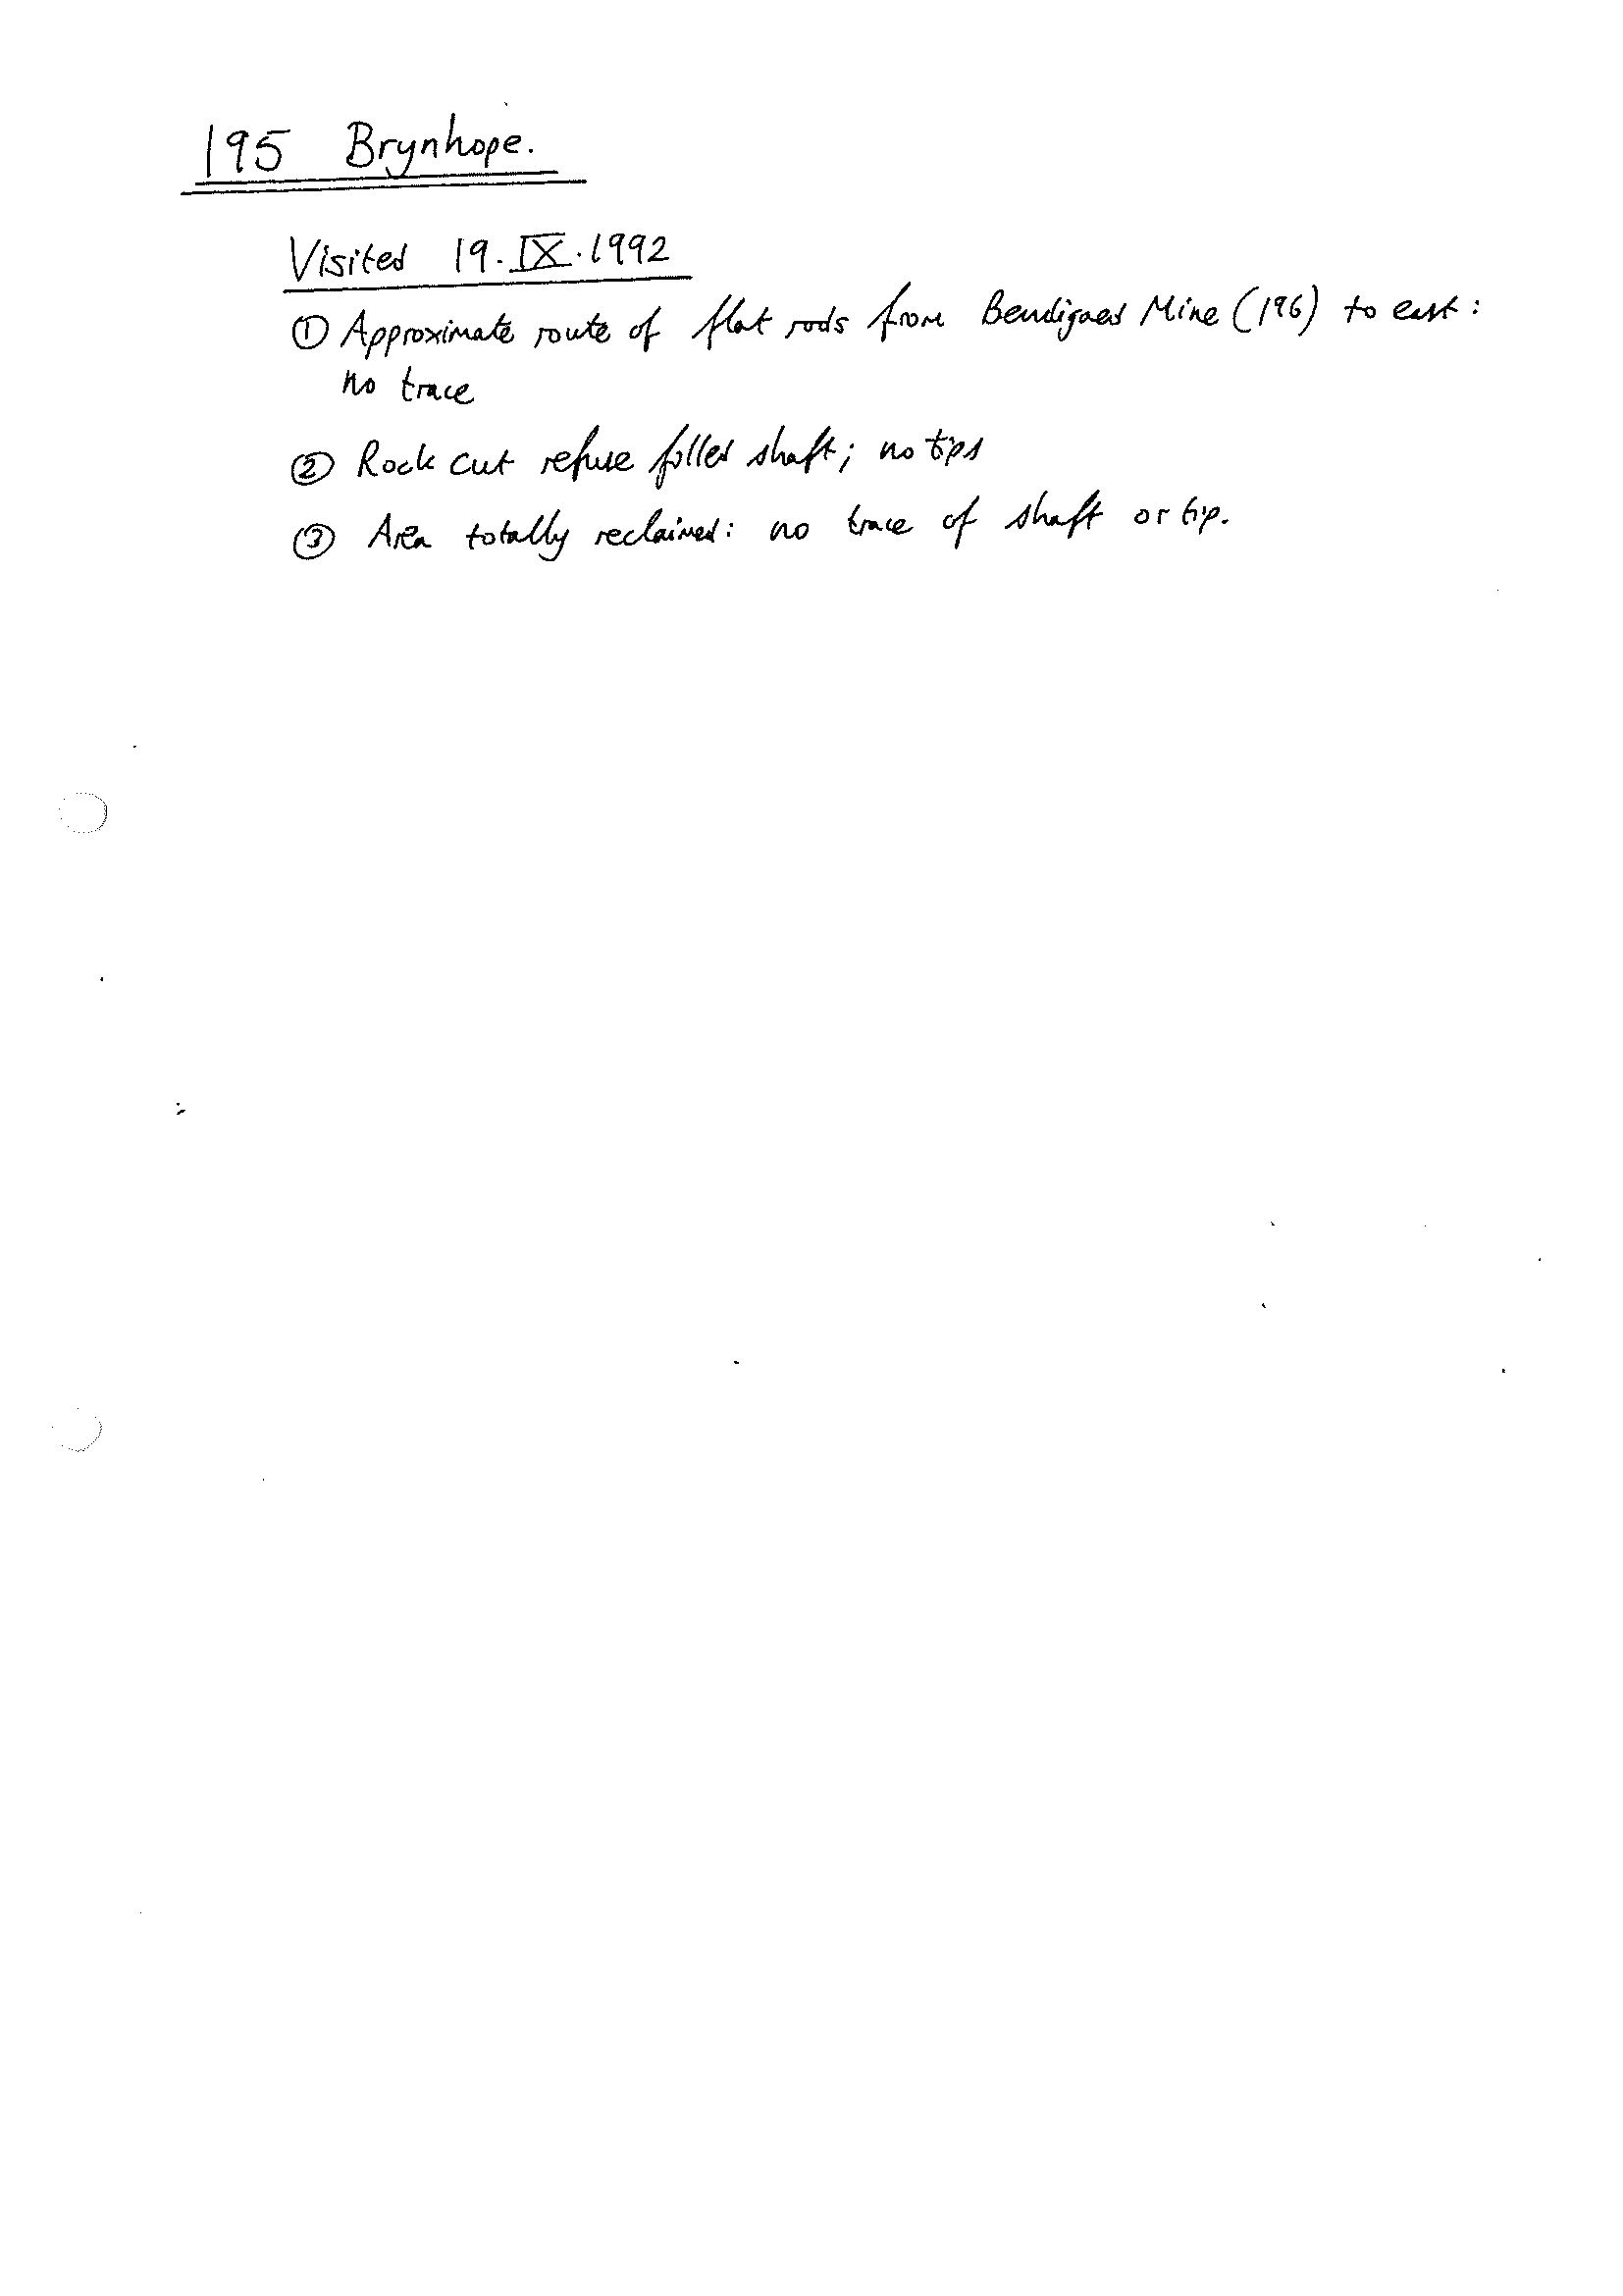 195 Brynhope.
Visited 19.IX.1992
① Approximate route of flat rods from Bendigaed Mine (196) to east:
no trace
② Rock cut refuse filled shaft; no tips
③ Area totally reclaimed: no trace of shaft or tip.